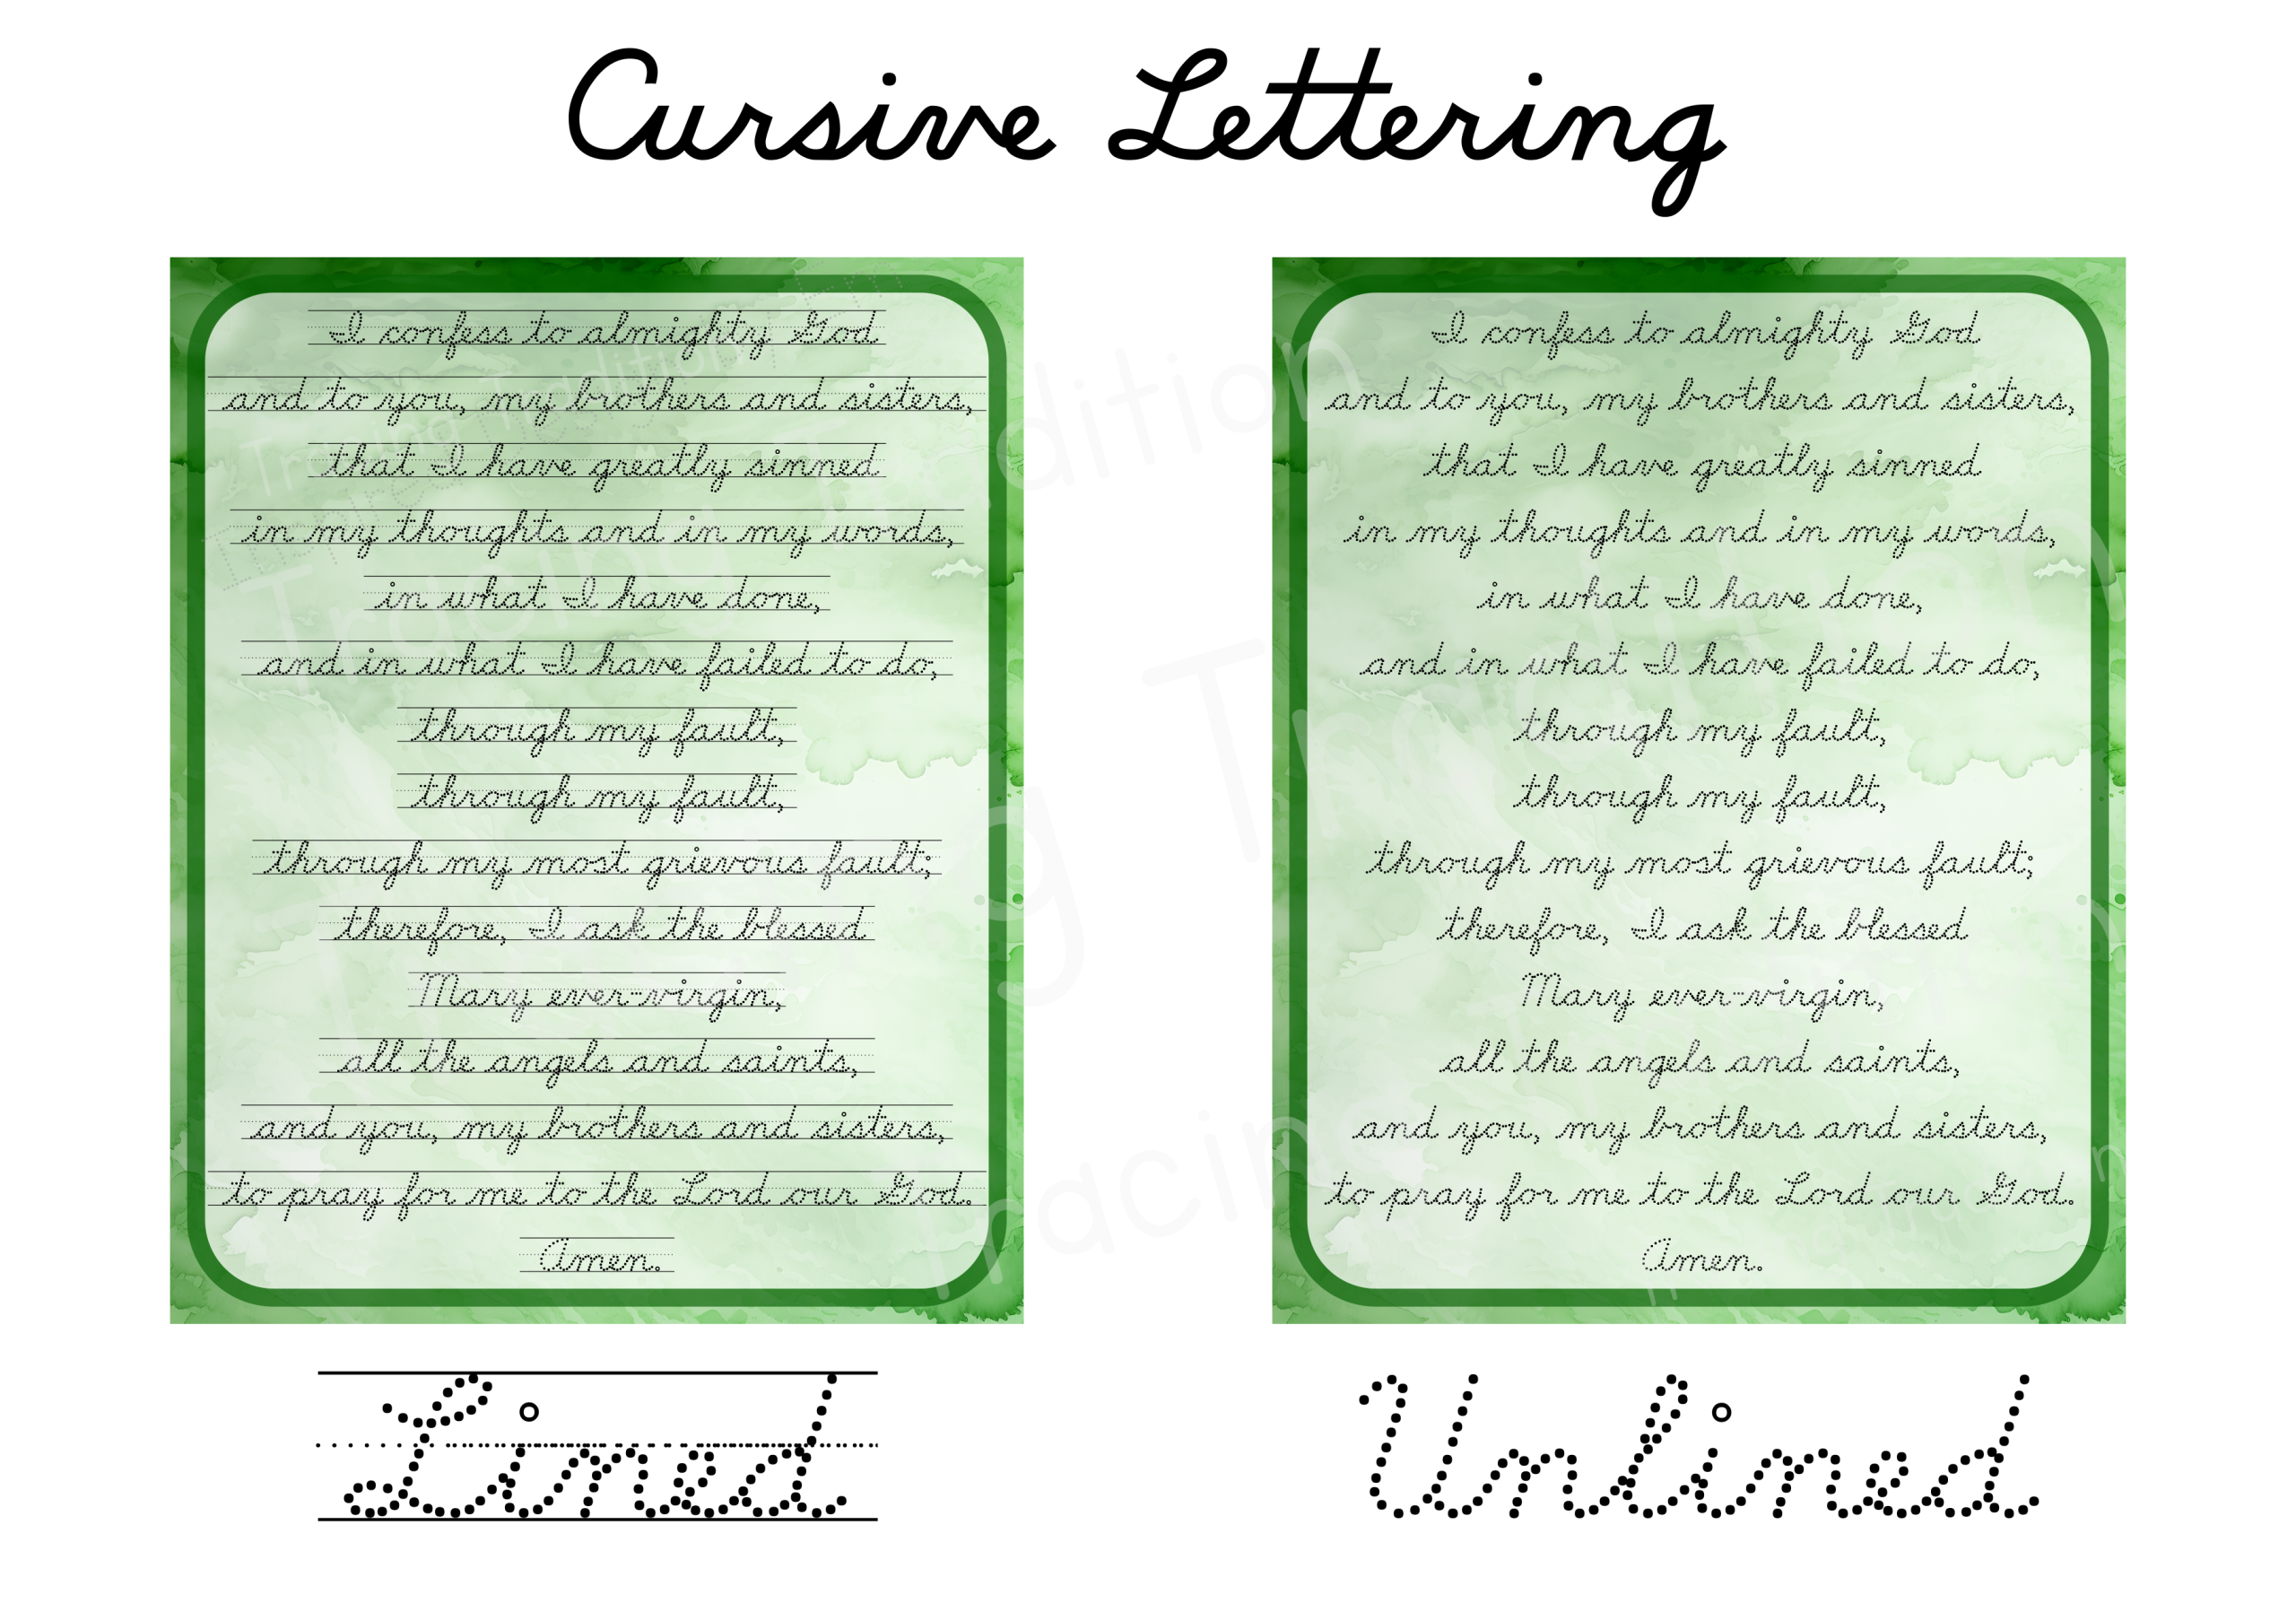 Cursive Lettering
I confess to almighty God
and to you, my brothers and sisters,
that I have greatly sinned
in my thoughts and in my words,
in what I have done,
and in what I have failed to do,
through my fault,
through my fault,
through my most grievous fault;
therefore, I ask the blessed
Mary ever-virgin,
all the angels and saints,
and you, my brothers and sisters,
to pray for me to the Lord our God.
Amen.
Lined
I confess to almighty God
and to you, my brothers and sisters,
that I have greatly sinned
in my thoughts and in my words,
in what I have done,
and in what I have failed to do,
through my fault,
through my fault,
through my most grievous fault;
therefore, I ask the blessed
Mary ever-virgin,
all the angels and saints,
and you, my brothers and sisters,
to pray for me to the Lord our God.
Amen.
Unlined
Tracing Tradition
Tracing Tradition
Tracing Tradition